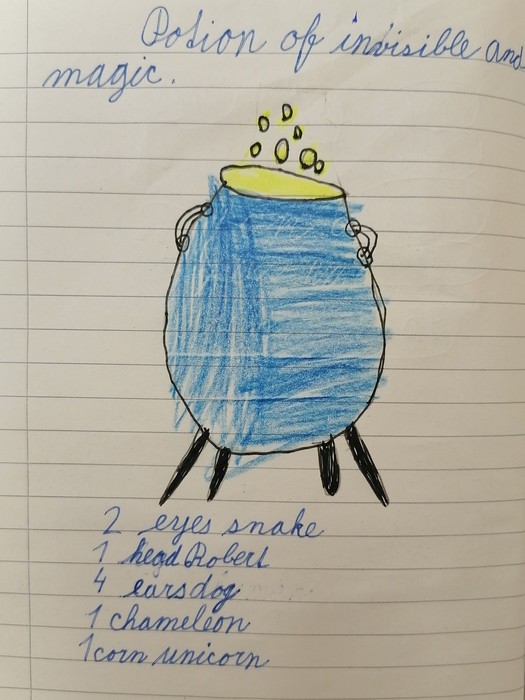 Potion of invisible and
magic.
2 eyes snake
1 head Robert
4 ears dog
1 chameleon
1 corn unicorn